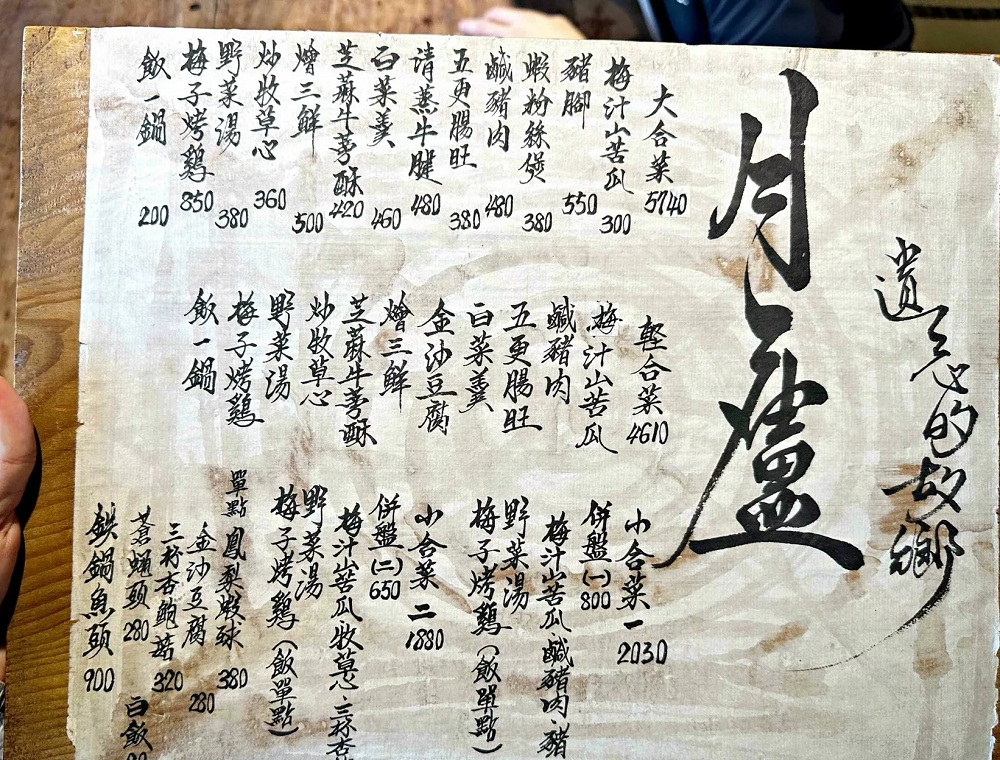 遺忘的故鄉
月廬
大合菜 5740
梅汁山苦瓜 300
豬腳 550
蝦粉絲煲 380
鹹豬肉 480
五更腸旺 380
清蒸牛腱 480
白菜羹 460
芝蔴牛蒡酥 420
燴三鮮 500
炒牧草心 360
野菜湯 380
梅子烤鷄 850
飯一鍋 200
輕合菜 4610
梅汁山苦瓜
鹹豬肉
五更腸旺
白菜羹
金沙豆腐
燴三鮮
芝蔴牛蒡酥
炒牧草心
野菜湯
梅子烤鷄
飯一鍋
小合菜一 2030
併盤(一) 800
梅汁山苦瓜 鹹豬肉、豬
野菜湯
梅子烤鷄(飯單點)
小合菜二 1880
併盤(二) 650
梅汁山苦瓜 牧草心、三杯杏
野菜湯
梅子烤鷄(飯單點)
單點
鳳梨蝦球 380
金沙豆腐 280
三杯杏鮑菇 320
蒼蠅頭 280
白飯
鉄鍋魚頭 900